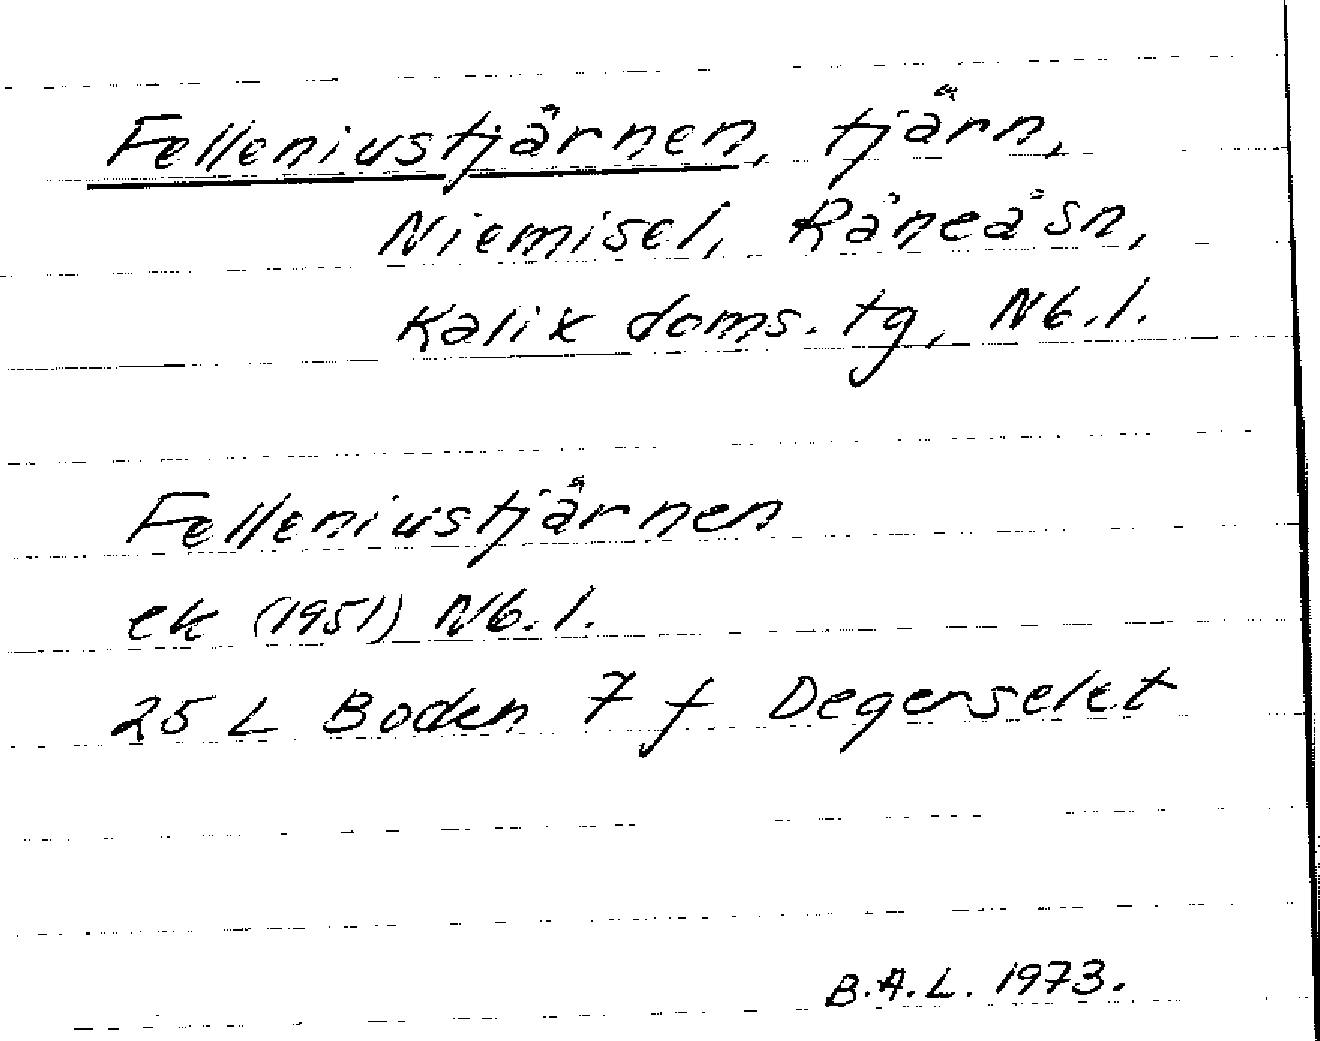 Felleniustjärnen, tjärn,
Niemisel, Råneå sn,
Kalix doms. tg, Nb. l.
Felleniustjärnen
ek (1951) Nb. l.
25 L Boden 7 f Degerselet
B.A.L. 1973.